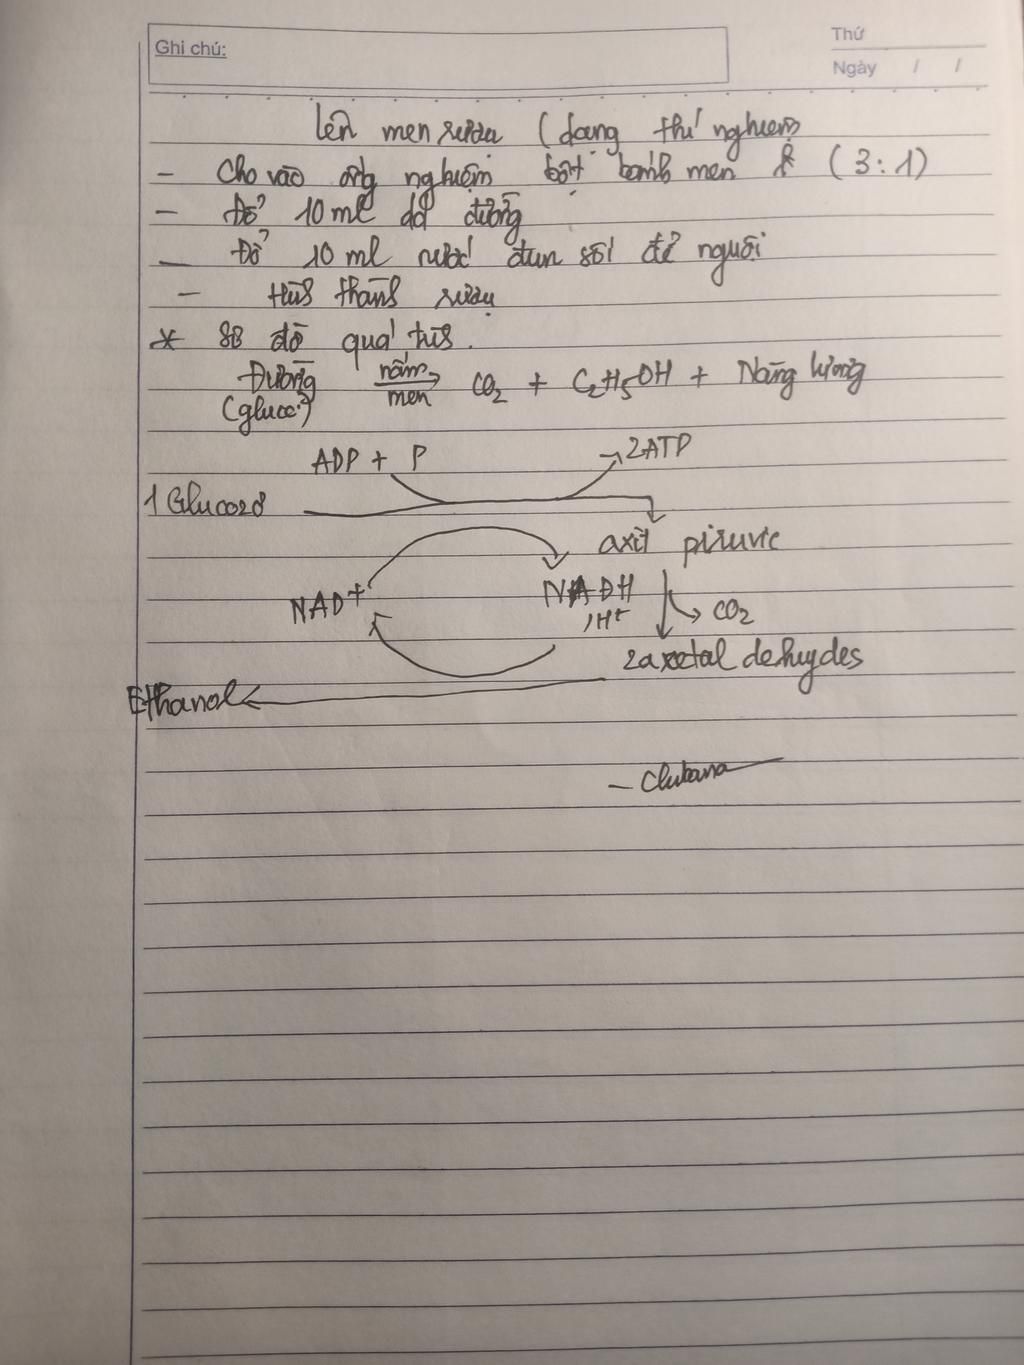 Ghi chú:
Thứ
Ngày / /
lên men rượu (dạng thí nghiệm
- Cho vào ống nghiệm bột bánh men (3:1)
- Đổ 10 ml dd đường
- Đổ 10 ml nước đun sôi để nguội
- thành rượu
* Sơ đồ quá
Đường nấm men → CO2 + C2H5OH + Năng lượng
ADP + P → 2ATP
1 Glucozơ
axit piruvic
NAD+ NADH
,H+ CO2
2axetal dehydes
Ethanol